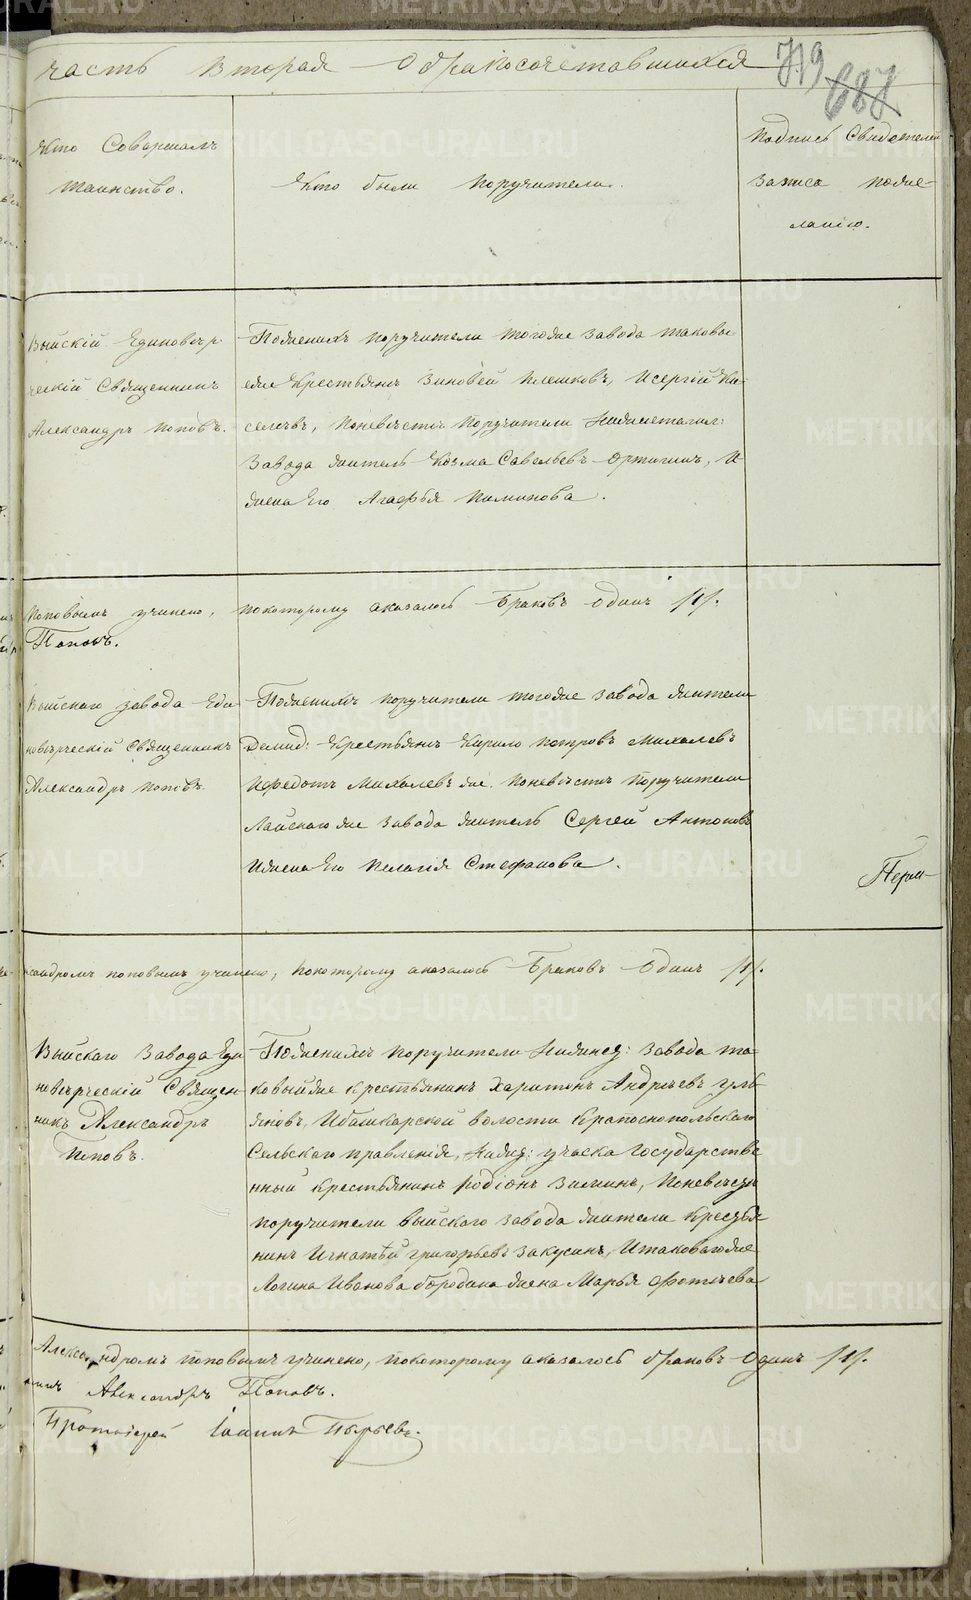 часть вторая о бракосочетавшихся 719
687
Кто Совершалъ
таинство.
Кто были поручители.
Подпись Свидетелей
записа поже-
ланію.
Выйскій Единовѣр
ческій Священникъ
Александръ Поповъ.
Поженихѣ поручители тогоже завода таковы
еже Крестьяне Зиновей Плешковъ, Исергій Ки-
селевъ, Поневѣстѣ Поручители Нижнетагил:
Завода житель Козма Савельевъ , И
жена Его Агафья Пиминова.
Поповымъ учинено, покоторому аказалось Браковъ Одинъ /1/.
Поповъ.
Выйскаго завода Еди
новѣрческій Священникъ
Александръ Поповъ.
Поженихѣ поручители тогоже завода жители
Демид: Крестьяне Кирило Петровъ Михалевъ
Ифедотъ Михалевъ же. Поневѣстѣ Поручители
Лайскаго же завода житель Сергей Антоновъ
Ижена Его Пелагія Стефанова.
Перм-
ксандромъ поповымъ учинено, покоторому аказалось Браковъ Одинъ /1/.
Выйскаго Завода Еди
новѣрческій Священ-
никъ Александръ
Поповъ.
Поженихѣ Поручители Нижнед: завода та-
ковыйже крестьянинъ Харитонъ Андреевъ Уль
яновъ, Ибашкарской волости Краснопольскаго
Сельскаго правленія, участка Государстве
нный крестьянинъ Родіонъ Зиминъ, Поневѣстѣ
поручители выйскаго завода жители Крестья
нинъ Игнатій Григорьевъ Закусинъ, Итаковагоже
Логина Иванова Бородина жена Марья Фотѣева
Александромъ Поповымъ учинено, покоторому аказалось браковъ Одинъ /1/.
Александръ Поповъ.
Протоіерей Іоаннъ Пырьевъ.
METRIKI.GASO-URAL.RU